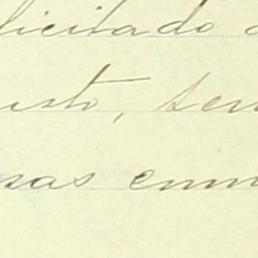 licitado
usto, sen
sas enm